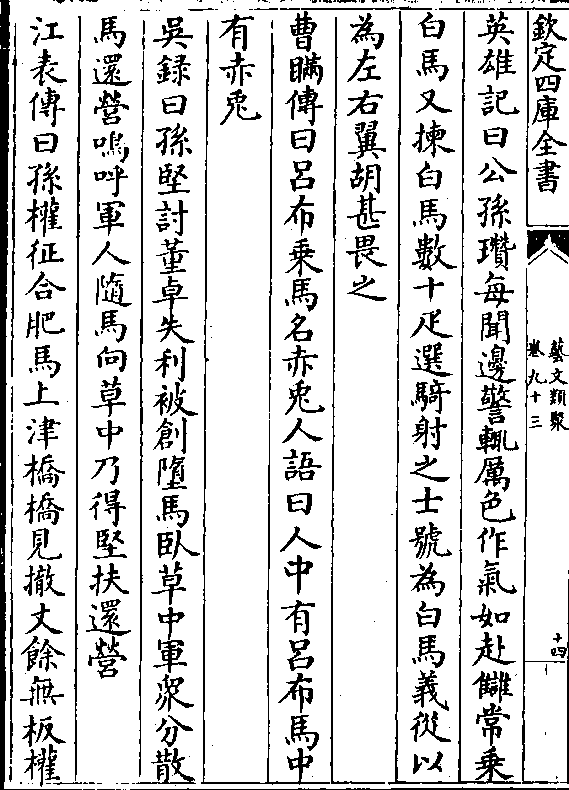 欽定四庫全書
藝文類聚
卷九十三
十四
英雄記曰公孫瓚每聞邊警輒厲色作氣如赴讎常乗
白馬又揀白馬數十疋選騎射之士號為白馬義從以
為左右翼胡甚畏之
曹瞞傳曰呂布乗馬名赤兎人語曰人中有呂布馬中
有赤兎
吳録曰孫堅討董卓失利被創墮馬臥草中軍衆分散
馬還營鳴呼軍人隨馬向草中乃得堅扶還營
江表傳曰孫權征合肥馬上津橋橋見撤丈餘無板權